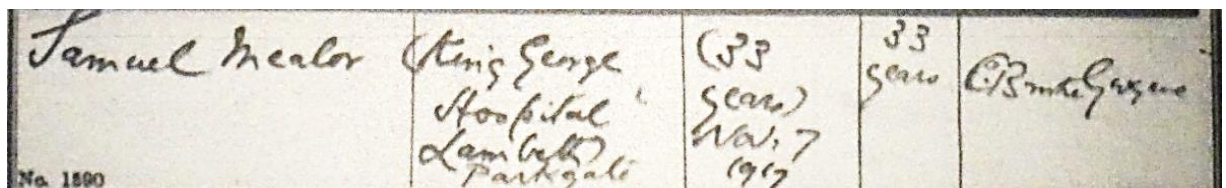 Samuel Mealor
(King George
Hospital
Lambeth)
Parkgate
(33
years)
Nov. 7
1917
33
years
No. 1890